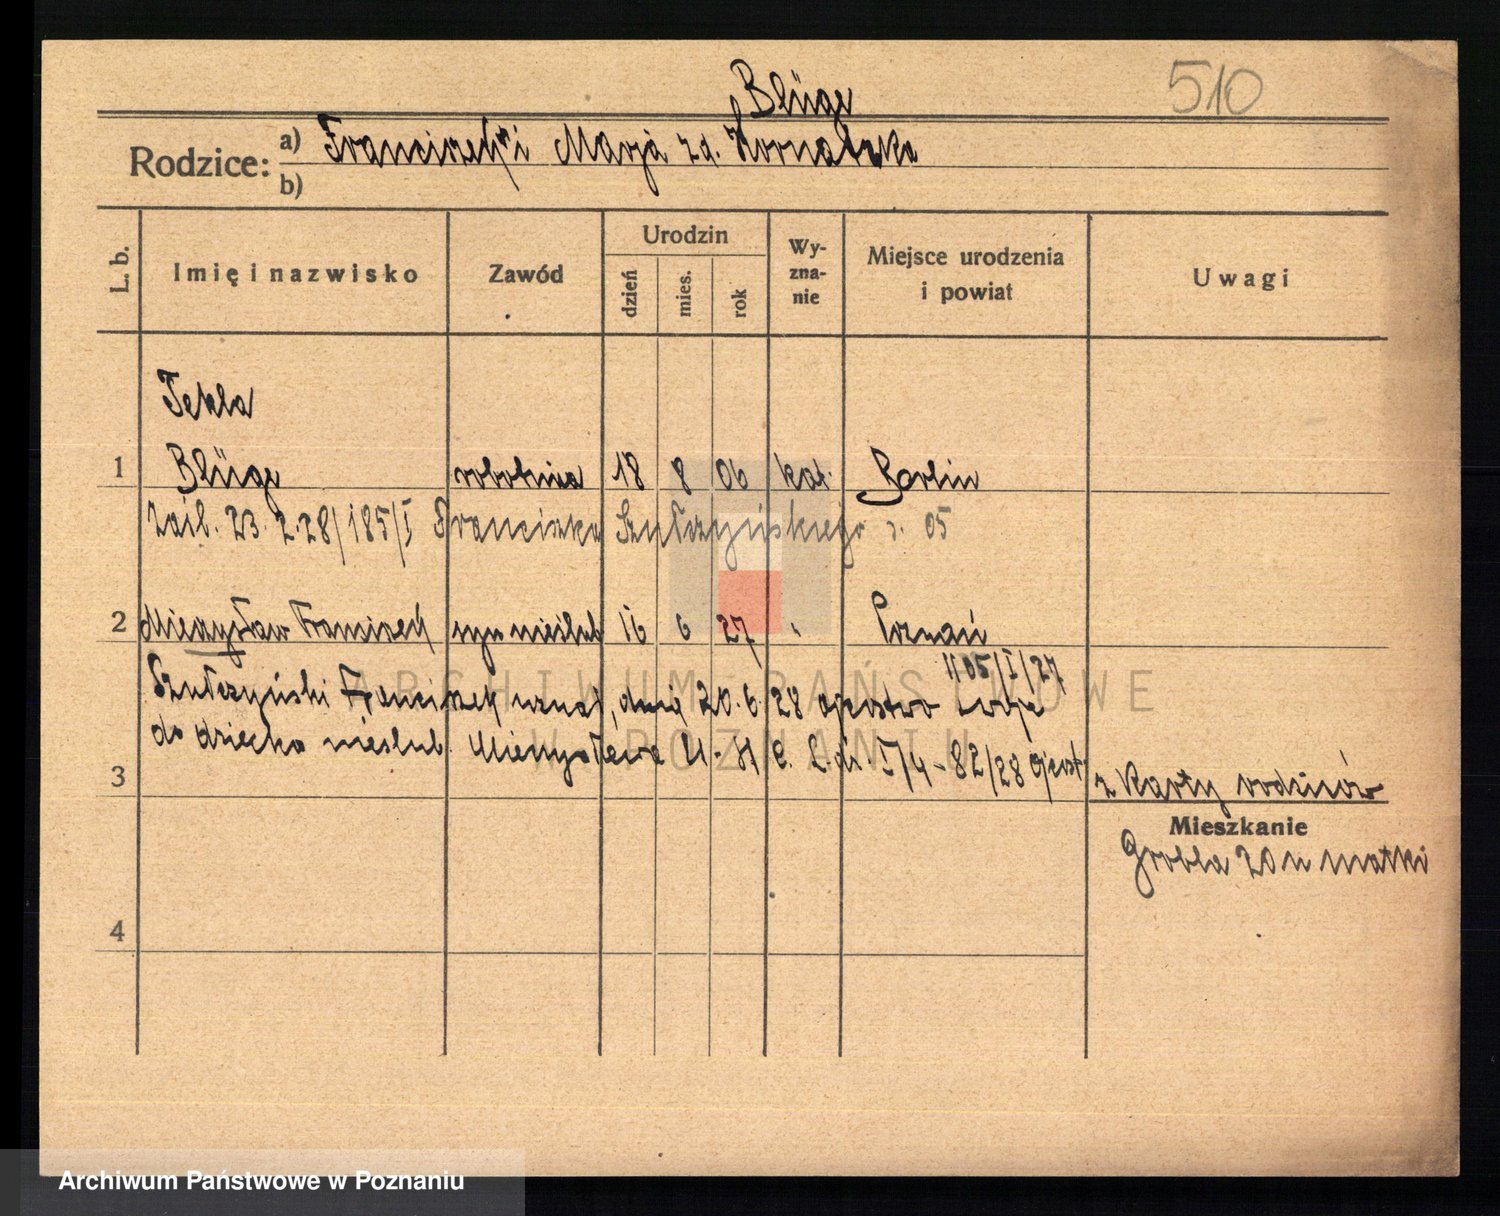 510
Blüge
Rodzice: a) Franciszek i Marja zd. Kornatzka
b)
L. b. Imię i nazwisko Zawód Urodzin dzień mies. rok Wyzna-nie Miejsce urodzenia i powiat Uwagi
Tekla
1 Blüge robotnica 18 8 06 kat. Berlin
zaśl. 23. 2. 28/185/I Franciszka Szułczyńskiego 05
2 Mieczysław Franciszek syn nieślub 16 6 27 " Poznań
1105/I/27
Szułczyński Franciszek uznał, dnia 20. 6. 28 ojcostwo swoje
do dziecka nieślub. Mieczysława I/4 - 82/28
3 z karty rodziców
Mieszkanie
Grobla 20 u matki
4
ARCHIWUM PAŃSTWOWE
W POZNANIU
Archiwum Państwowe w Poznaniu